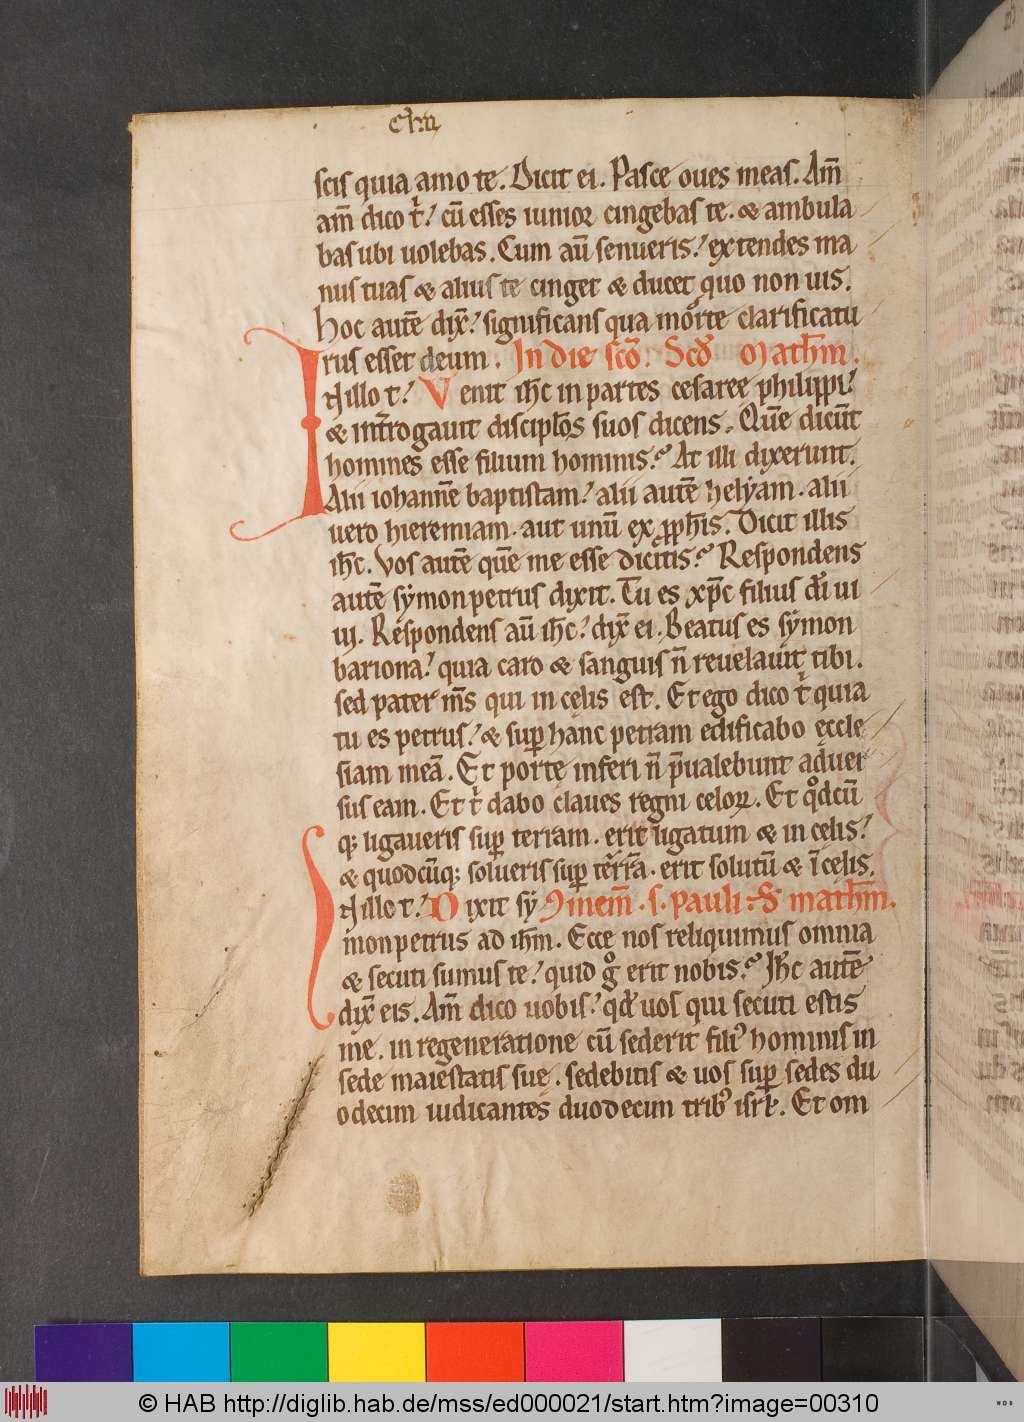 scis quia amo te. Dicit ei. Pasce oues meas. Am̅
am̅ dico t̅? cu̅ esses iunior cingebas te. & ambula
bas ubi uolebas. Cum au̅ senueris? extendes ma
nus tuas & alius te cinget & ducet quo non uis.
Hoc aute̅ dix̅? significans qua morte clarificatu
rus esset deum. In die sco̅. Scd̅ Math̅m.
In illo t̅? Venit ih̅c in partes cesaree philippi?
& int̅rogauit discipl̅os suos dicens. Que̅ dicu̅t
homines esse filium hominis? At illi dixerunt.
Alii iohanne̅ baptistam? alii aute̅ helyam. alii
uero hieremiam. aut unu̅ ex p̱ph̅is. Dicit illis
ih̅c. Vos aute̅ que̅ me esse dicitis? Respondens
aute̅ symon petrus dixit. Tu es xp̅c filius di̅ ui
ui. Respondens au̅ ih̅c? dix̅ ei. Beatus es symon
bariona? quia caro & sanguis n̅ reuelauit tibi.
sed pater m̅s qui in celis est. Et ego dico t̅ quia
tu es petrus? & sup̱ hanc petram edificabo eccle
siam mea̅. Et porte inferi n̅ p̅ualebunt aduer
sus eam. Et t̅ dabo claues regni celoꝝ. Et qͦdcu̅
q; ligaueris sup̱ terram. erit ligatum & in celis?
& quodcu̅q; solueris sup̱ terra̅. erit solutu̅ & i̅ celis.
In illo t̅? Dixit sy In mem̅. s. Pauli. S. math̅m.
mon petrus ad ih̅m. Ecce nos reliquimus omnia
& secuti sumus te? quid gͦ erit nobis? Ih̅c aute̅
dix̅ eis. Am̅ dico uobis? qd̅ uos qui secuti estis
me. in regeneratione cu̅ sederit filiꝰ hominis in
sede maiestatis sue. sedebitis & uos sup̱ sedes du
odecim iudicantes duodecim tribꝰ isrl̅. Et om
© HAB http://diglib.hab.de/mss/ed000021/start.htm?image=00310